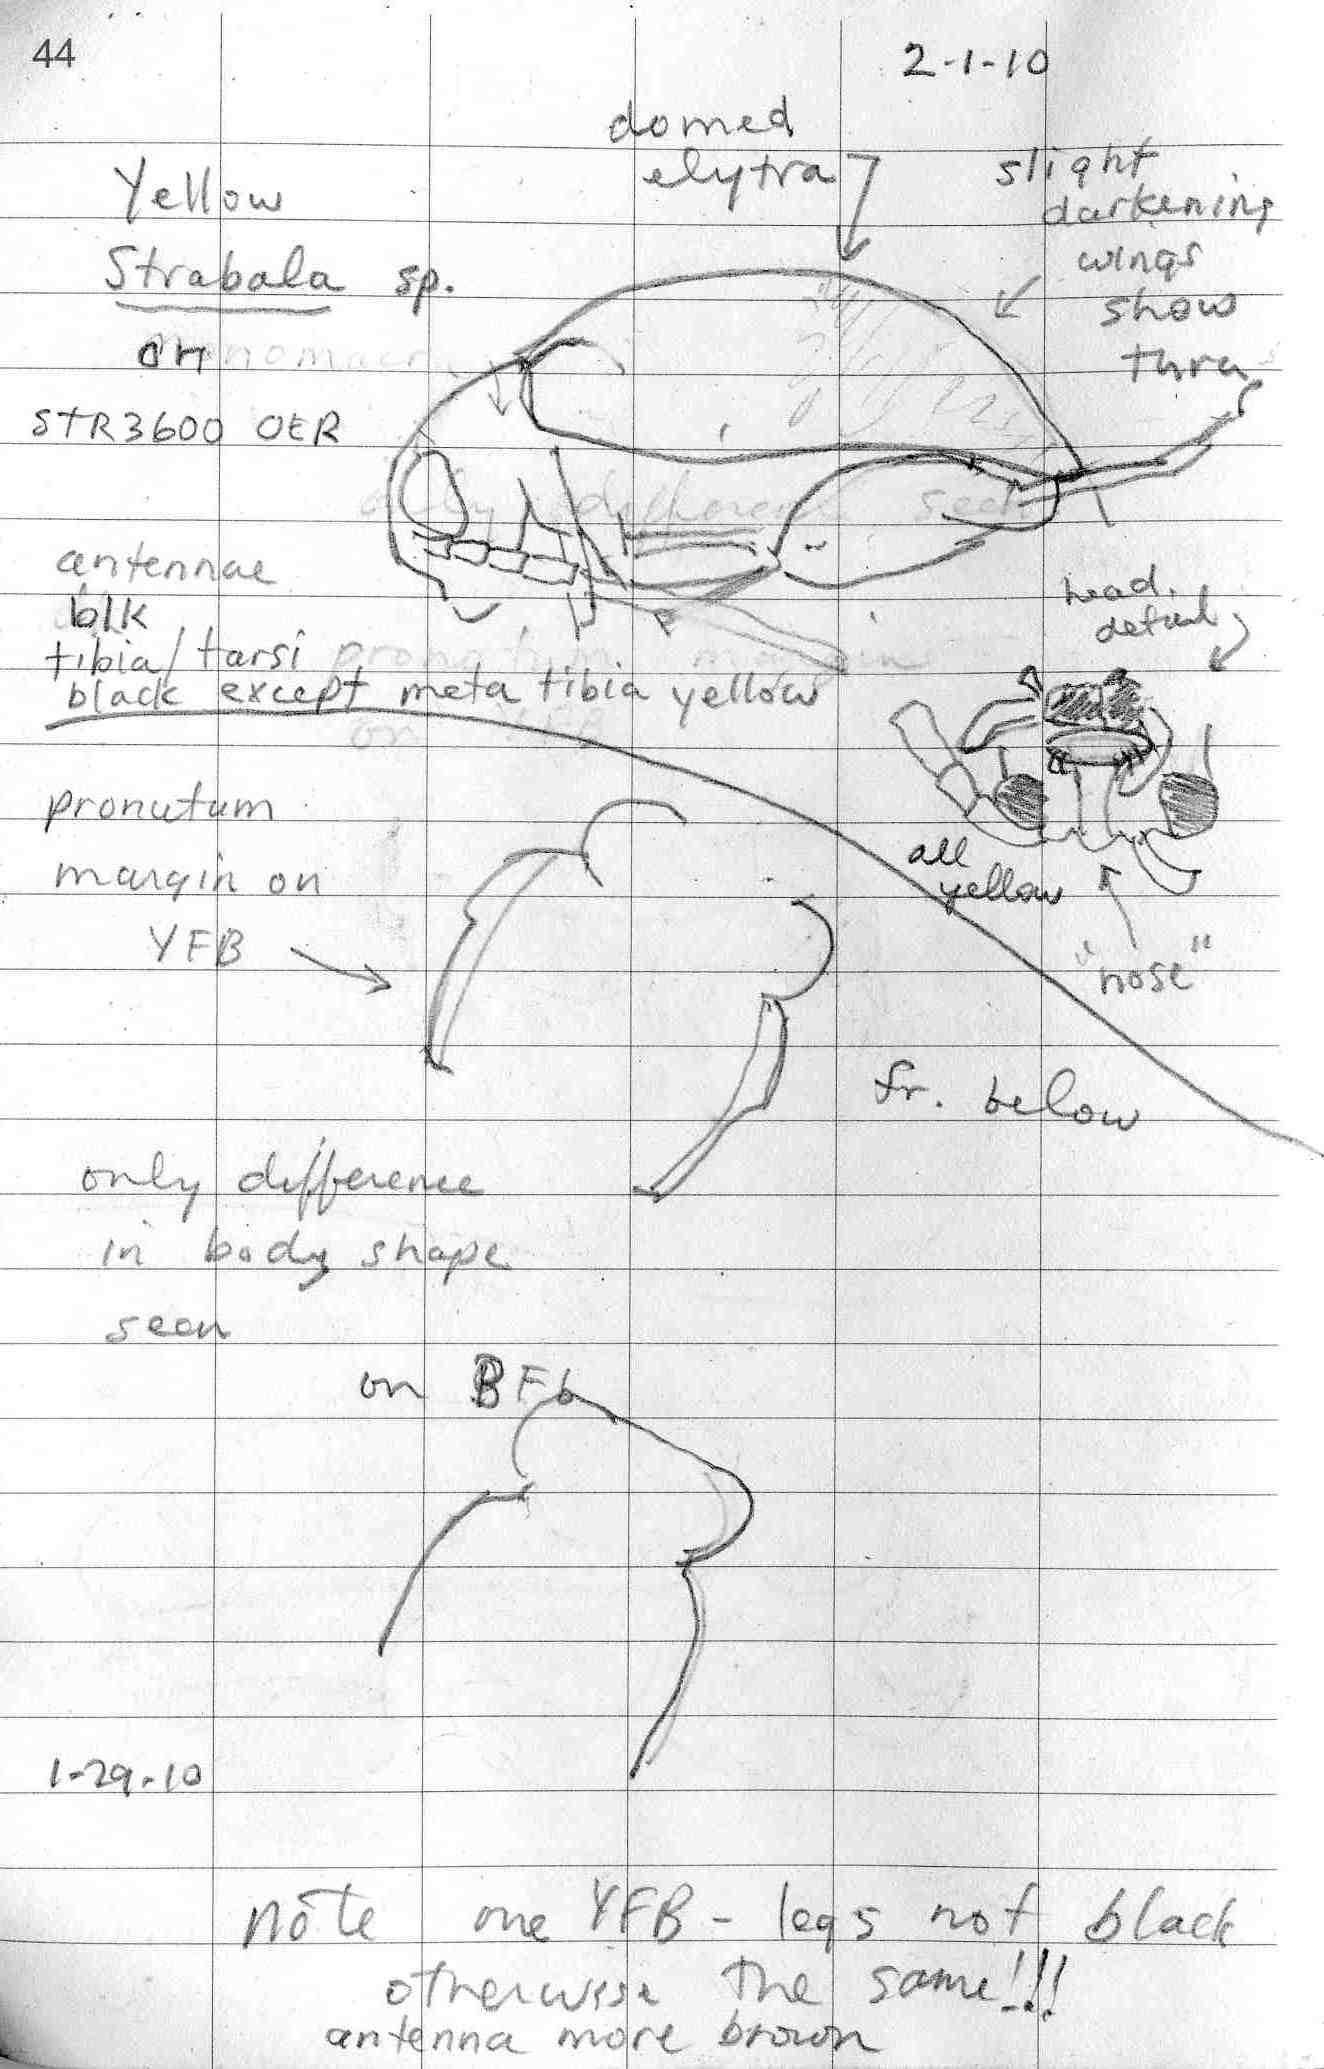 44
2-1-10
domed
elytra
slight
darkening
wings
show
thru
Yellow
Strabala sp.
on
STR3600 OER
antennae
blk
tibia/tarsi
black except meta tibia yellow
head
detail
all
yellow
"nose"
pronutum
margin on
YFB
fr. below
only difference
in body shape
seen
on BFb
1-29-10
note one YFB - legs not black
otherwise the same!!!
antenna more brown